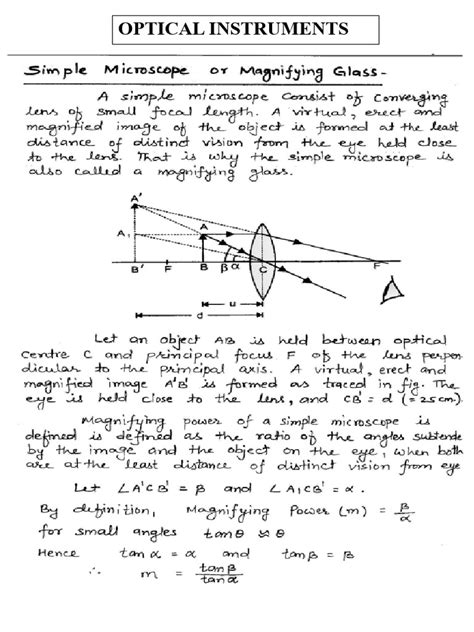 OPTICAL INSTRUMENTS
Simple Microscope or Magnifying Glass-
A simple microscope consist of converging
lens of small focal length. A virtual, erect and
magnified image of the object is formed at the least
distance of distinct vision from the eye held close
to the lens. That is why the simple microscope is
also called a magnifying glass.
A'
A₁ A
B' F B β α C F
u
d
Let an object AB is held between optical
centre C and principal focus F of the lens perpen
dicular to the principal axis. A virtual, erect and
magnified image A'B' is formed as traced in fig. The
eye is held close to the lens, and CB' = d (= 25cm).
Magnifying power of a simple microscope is
defined is defined as the ratio of the angles subtende
by the image and the object on the eye, when both
are at the least distance of distinct vision from eye
Let ∠A'CB' = β and ∠A₁CB' = α.
By definition, Magnifying Power (m) = β/α
for small angles tanθ ≈ θ
Hence tanα = α and tanβ = β
∴ m = tanβ/tanα